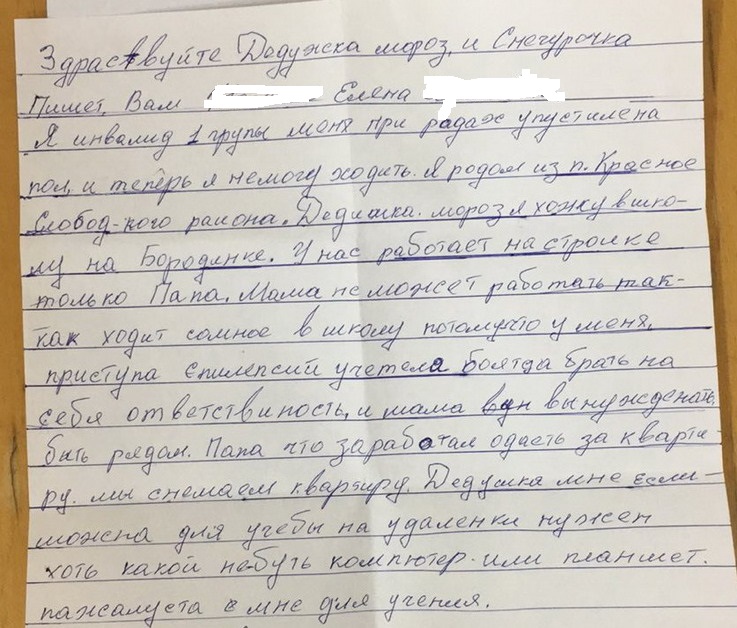 Здраствуйте Дедужка мороз, и Снегурочка
Пишет, Вам Елена
Я инвалид 1 групы меня при радах упустилена
пол, и теперь я немогу ходить. Я родом из п. Красное
Слобод-кого раиона. Дедушка. мороз я хожу вшко-
лу на Бородинке. У нас работает на строике
только Папа. Мама не может работать так-
как ходит сомное в школу потомучто у меня,
приступа Епилепсий учетела боятда брать на
себя ответствиность, и мама вынуждената
быть рядом. Папа что заработал одаеть за кварти-
ру. мы снемаем квартиру. Дедушка мне если-
можна для учебы на удаленки нужен
хоть какой небуть компютер. или планшет.
пажалуста с мне для учения.